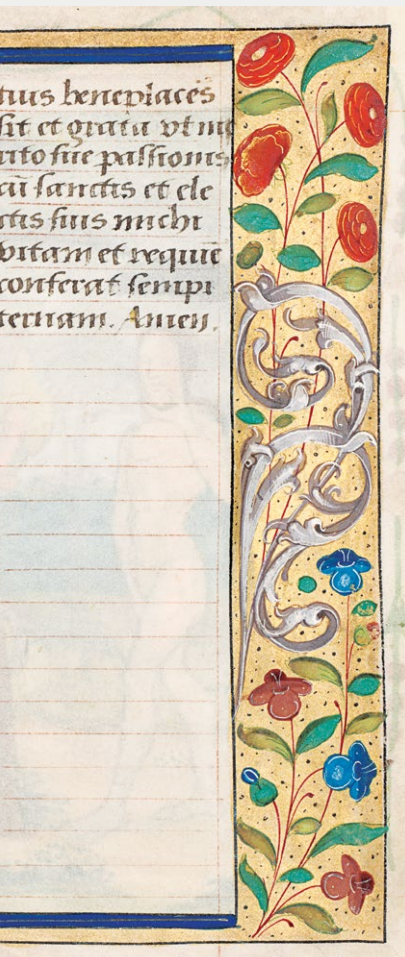 tuus beneplaces
sit et grata ut me
rito sue passionis
cū sanctis et ele
ctis suis michi
vitam et requiē
conferat sempi
ternam. Amen.